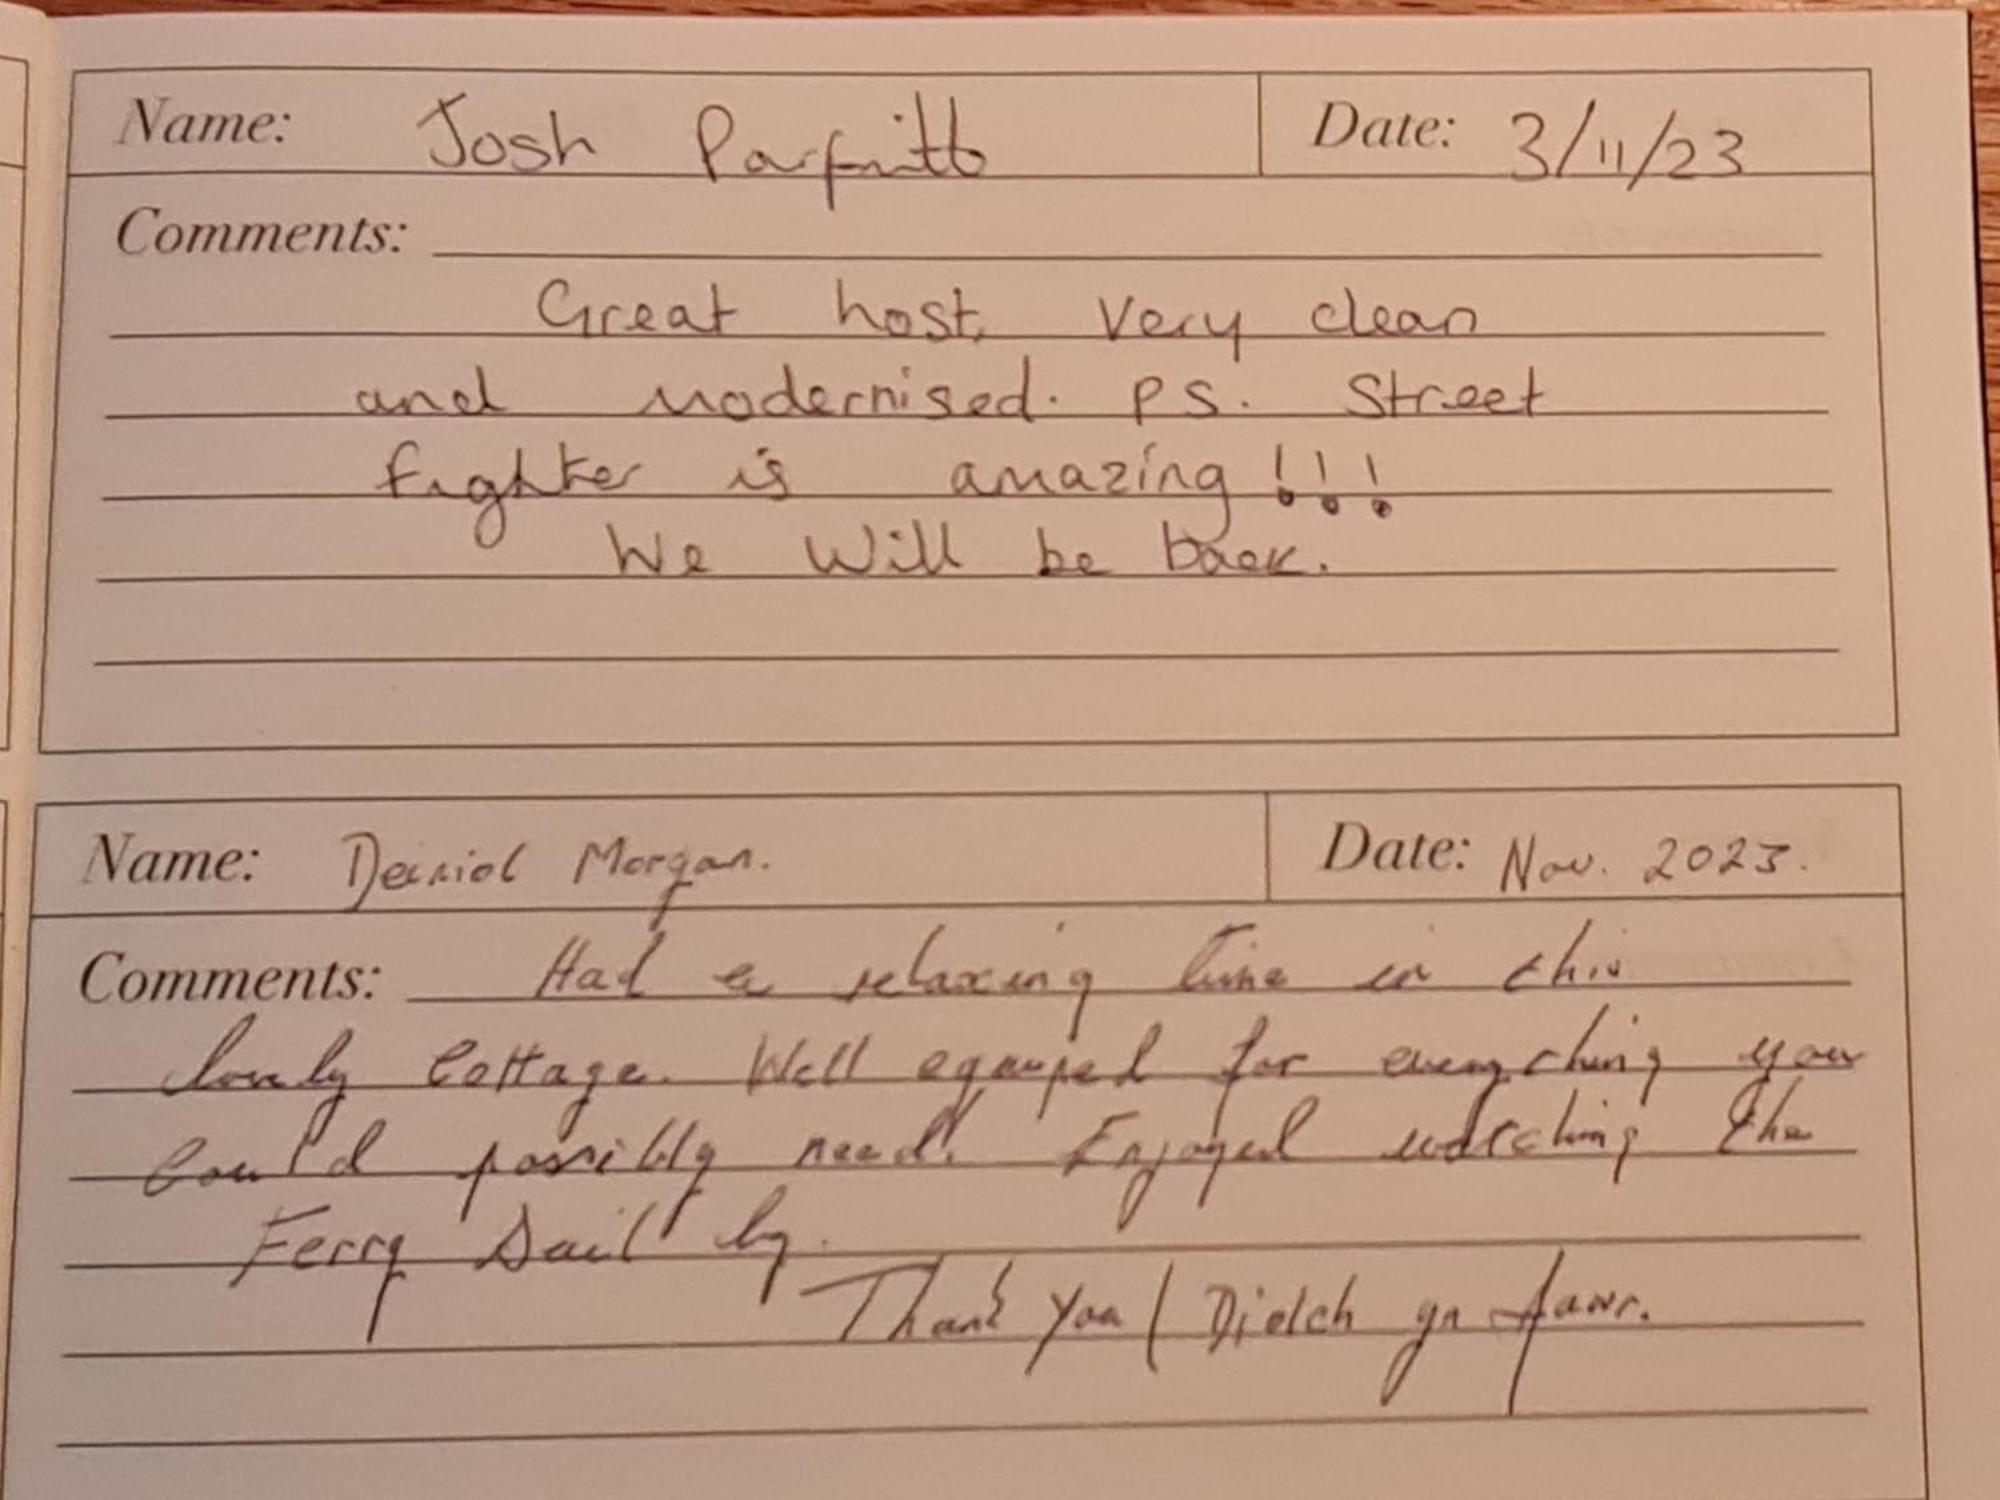 Name: Josh Parfitt Date: 3/11/23
Comments:
Great host, Very clean
and modernised. PS. Street
fighter is amazing!!!
We Will be back.
Name: Deiniol Morgan. Date: Nov. 2023.
Comments: Had a relaxing time in this
lovely Cottage. Well equiped for everything you
Could possibly need. Enjoyed watching the
Ferry Sail by.
Thank You / Diolch yn fawr.